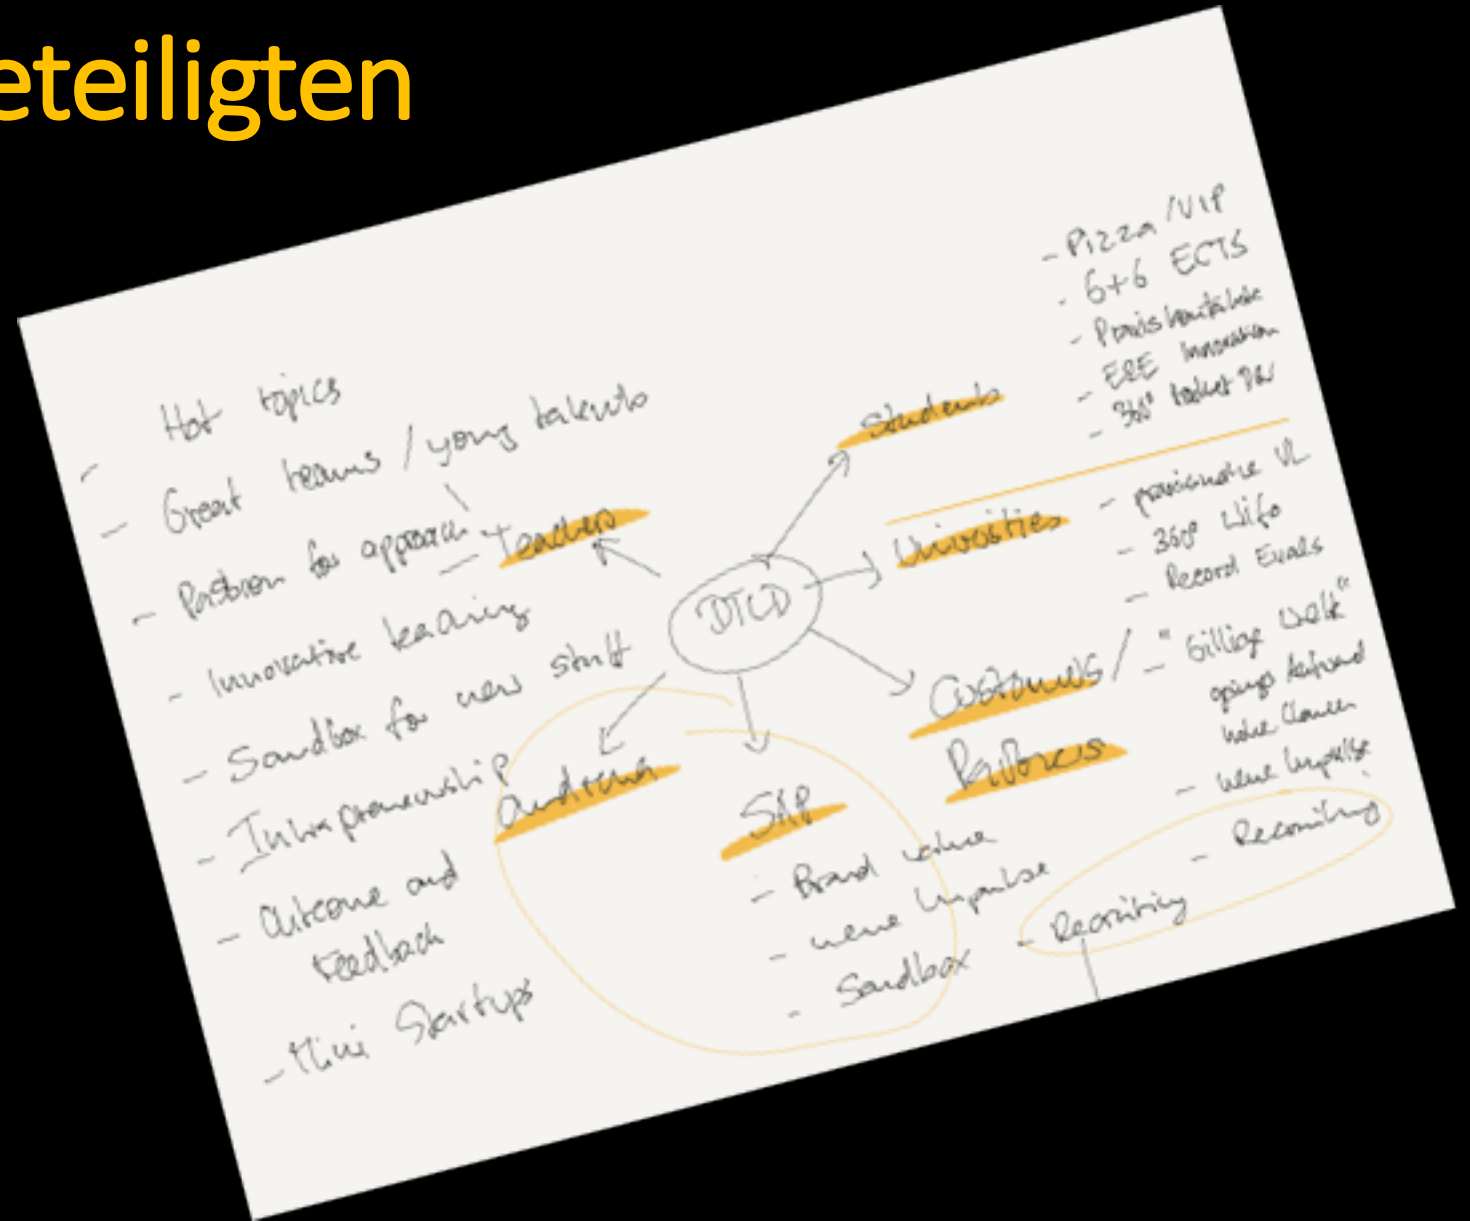 eteiligten
- Hot topics
- Great teams / young talents
- Passion for approach
- Innovative teaching
- Sandbox for new stuff
- Intrapreneurship
- Outcome and
Feedback
- Mini Startups
Teachers
DTCD
Students
- Pizza/VIP
- 6+6 ECTS
- E2E Innovation
- 360°
Universities
- praxisnahe VL
- 360° WiFo
- Record Evals
Customers /
Partners
- "Billige
- neue Impulse
- Recruiting
andrena
SAP
- Brand value
- neue Impulse
- Sandbox
- Recruiting